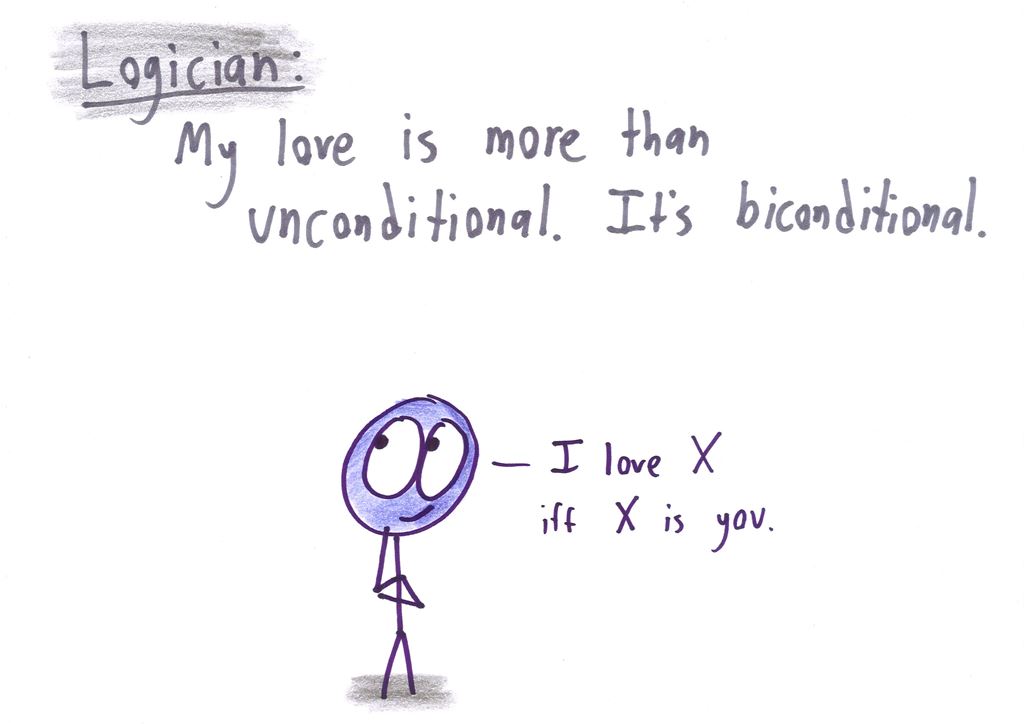 Logician:
My love is more than
unconditional. It's biconditional.
I love X
iff X is you.